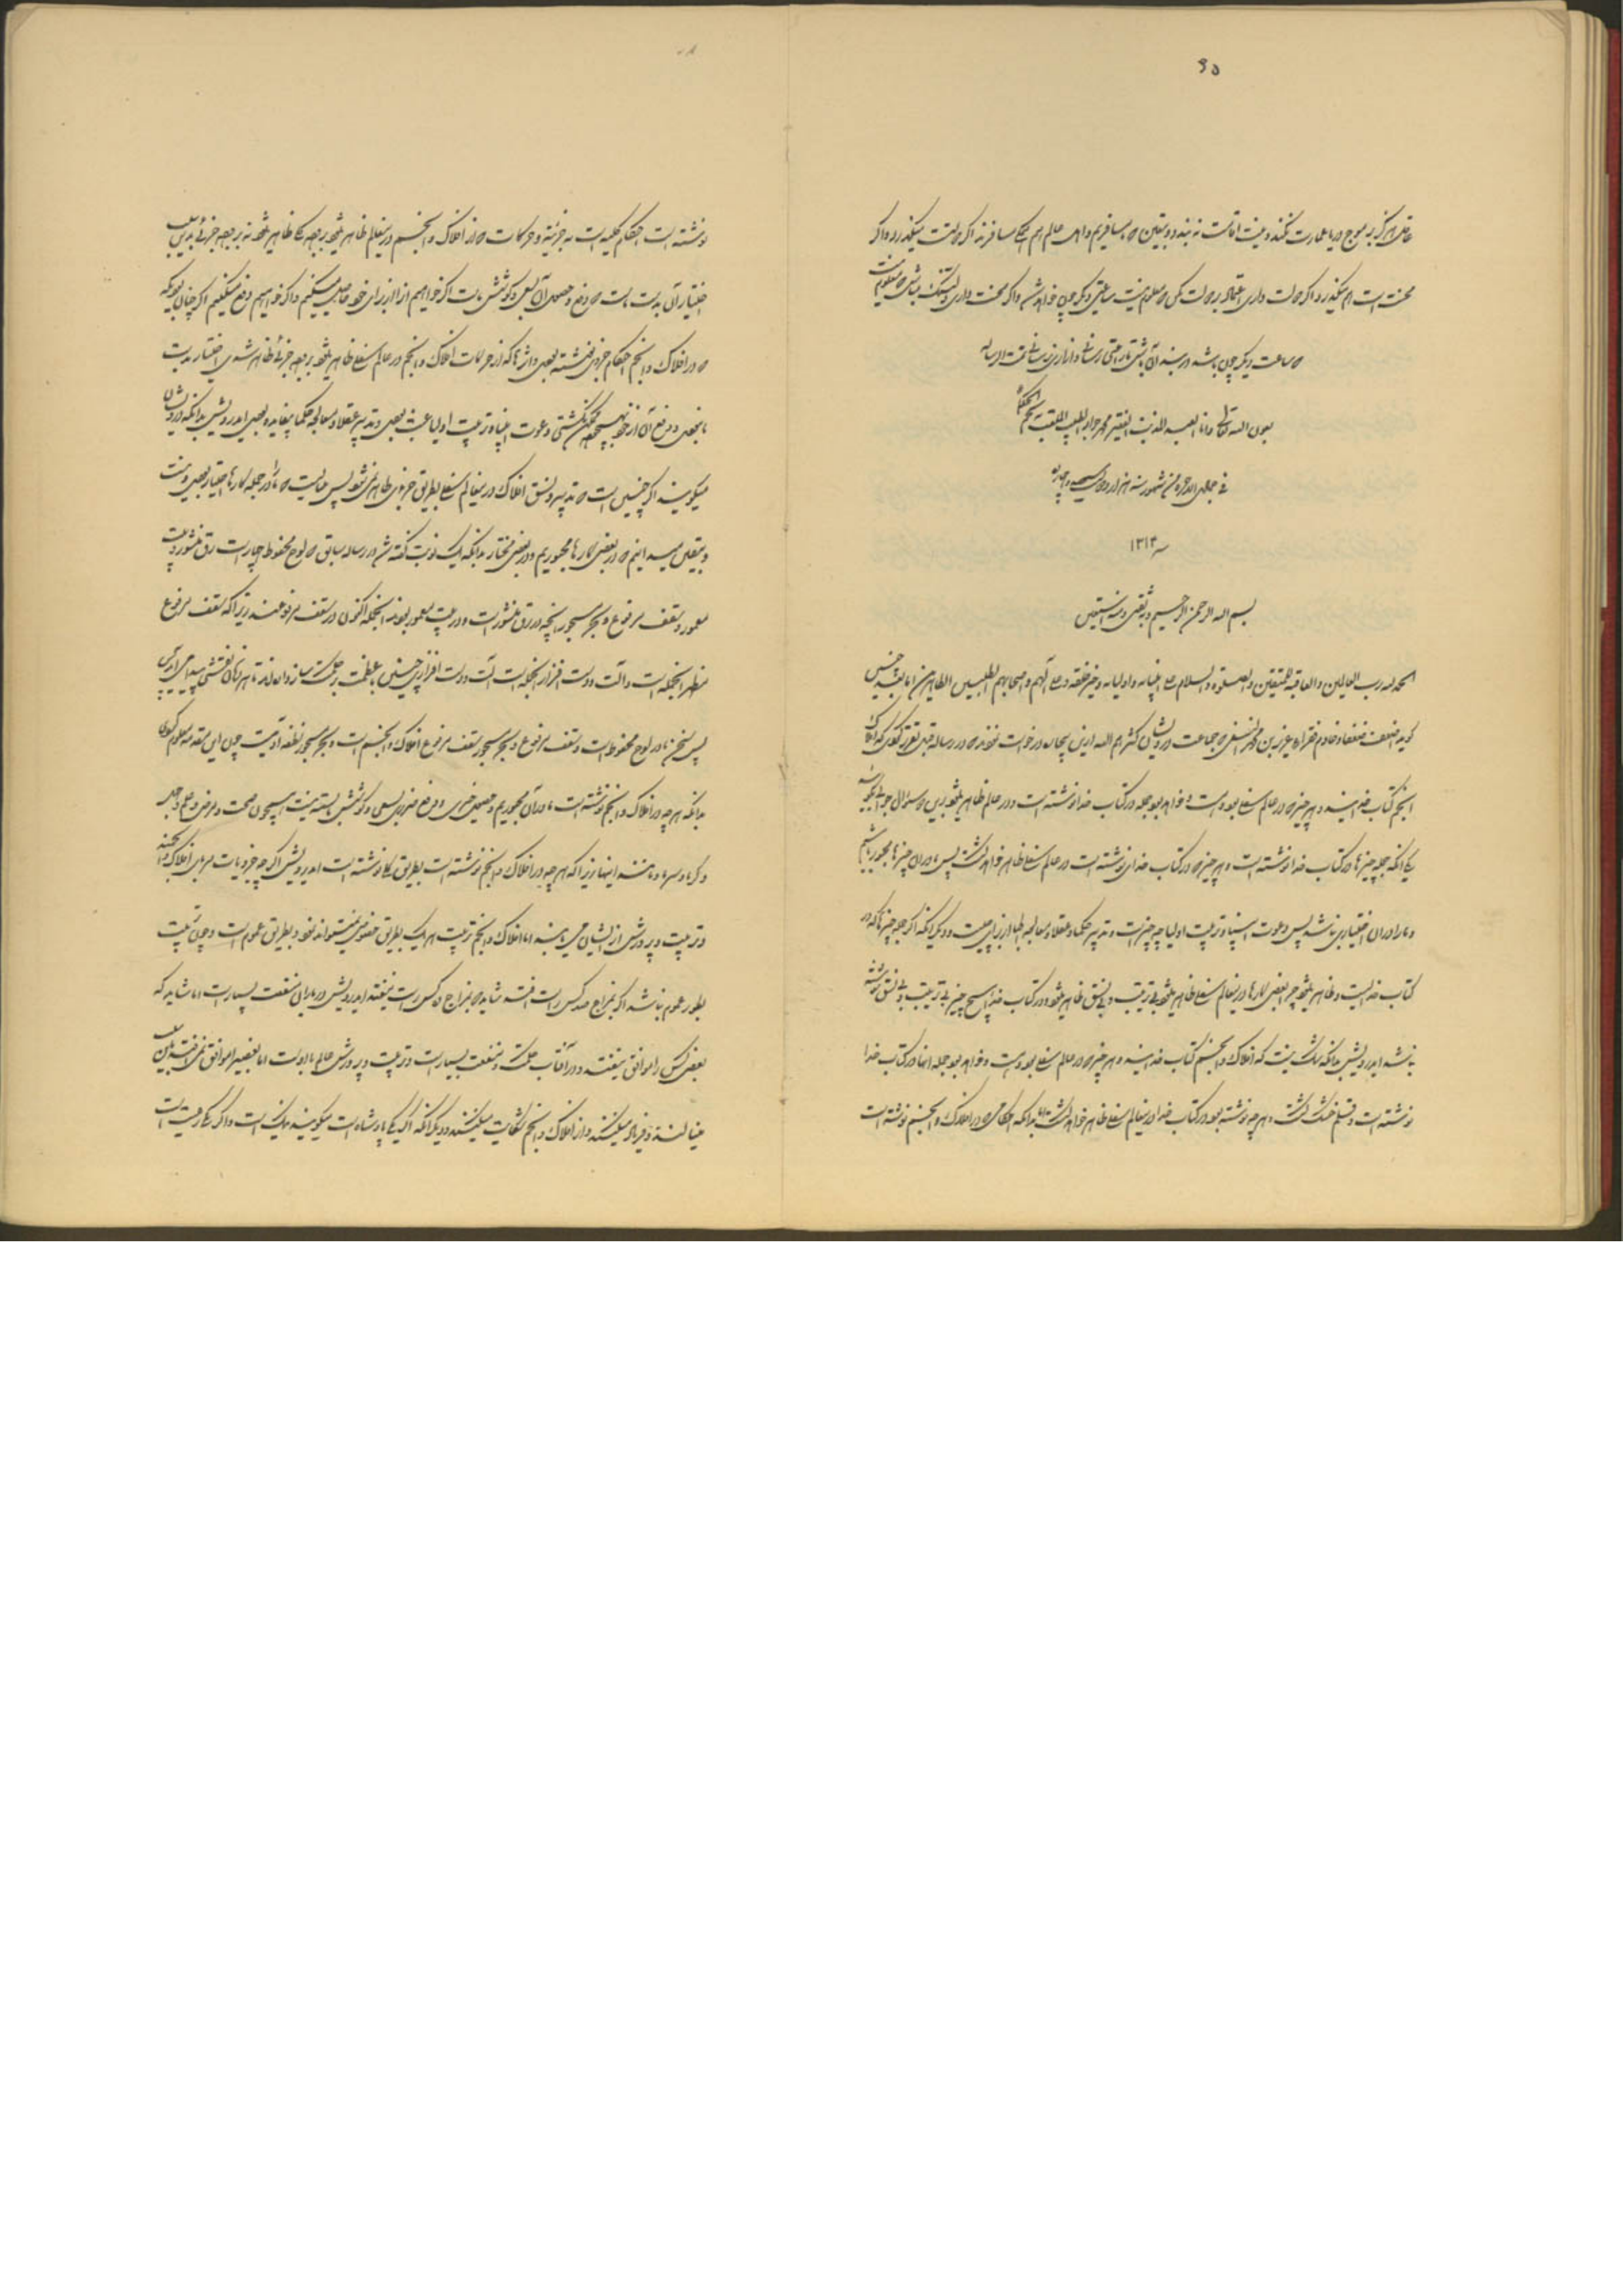 ۶۵
عاقل هرگز بر موج دریا عمارت نکند و نیت اقامت نه بندد و بیقین که مسافریم و اهل عالم هم همه مسافرند اگر دولتست میگذرد و اگر
محنت است هم میگذرد اگر دولت داری اعتماد بر دولت مکن که معلوم نیست ساعتی دیگر چون خواهد شد و اگر محنت داری دلتنگ مباش که معلوم نیست
که ساعت دیگر چون باشد در بند آن باش تا راحتی رسانی و ازاری نرسانی تمت الرساله
بعون الله تعالی وانا العبد المذنب الفقیر محمد جواد الطبیب الملقب
فی جمادی الاخره من شهور سنه هزار و سیصد و چهارده
سنه ۱۳۱۴
بسم الله الرحمن الرحیم و به ثقتی و منه استعین
الحمد لله رب العالمین والعاقبة للمتقین والصلوة والسلام علی انبیائه و اولیائه و خیر خلقه و علی آلهم و اصحابهم الطیبین الطاهرین اما بعد چنین
گوید اضعف ضعفا و خادم فقراء عزیز بن محمد النسفی که جماعت درویشان کثرهم الله ازین بیچاره درخواست نمودند که در رساله قبل تقریر کردی که افلاک
و انجم کتاب خدایند و هر چیزی که در عالم سفلی بوده است و خواهد بود جمله در کتاب خدا نوشته است و در عالم ظاهر میشود برین که سؤال
یکی انکه جمله چیزها در کتاب خدا نوشته است و هر چیزی که در کتاب خدای نوشته است در عالم سفلی ظاهر خواهد گشت پس ما در ان چیزها مجبور باشیم
و ما را در ان اختیاری نباشد پس دعوت انبیا و تربیت اولیا چه چیز است و تدبیر حکما و عقلا و معالجه اطبا از برای چیست و دیگر انکه اگر جمله چیزها که در
کتاب خداست و ظاهر میشود چرا بعضی کارها در ینعالم سفلی ظاهر میشود بی ترتیب و بی نسق ظاهر میشود و در کتاب خدا هیچ چیز بی ترتیب و بی نسق نوشته
نباشد ایدرویش بدانکه شک نیست که افلاک و انجم کتاب خدایند و هر چیزی که در عالم سفلی بوده است و خواهد بود جمله انها در کتاب خدا
نوشته است و قلم خشک گشته و هر چه نوشته بود در کتاب خدا در ینعالم سفلی ظاهر خواهد گشت اما بدانکه احکامی که در افلاک و انجم نوشته است
نوشته است احکام کلیه است نه جزئیه و حرکات که در افلاک و انجم در ینعالم ظاهر میشود بر وجه کلی ظاهر میشود نه بر وجه جزئی بدین سبب
اختیار آن بدست ماست که دفع و حصول آن بسعی و کوشش ماست اگر خواهیم انرا از برای خود حاصل میکنیم و اگر خواهیم دفع میکنیم اگر چنان بودی که
که در افلاک و انجم احکام جزوی نوشته بودی و اثرها که از حرکات افلاک و انجم در عالم سفلی ظاهر میشود بر وجه جزئی ظاهر شدی اختیار بدست
ما نبودی و دفع آن از خود بهیچوجه ممکن نگشتی و دعوت انبیاء و تربیت اولیا عبث بودی و تدبیر عقلا و معالجه حکما بیفایده بودی ایدرویش بدانکه درویشان
میگویند اگر چنین است که تدبیر و نسق افلاک در ینعالم سفلی بطریق جزوی ظاهر نمیشود پس میبایست که ما را در جمله کارها اختیار بودی و نیست
و بیقین میدانیم که در بعضی کارها مجبوریم و در بعضی مختار بدانکه یک نوبت گفته شد در رساله سابق که لوح محفوظ چهار است رق منشور و بیت
معمور و سقف مرفوع و بحر مسجور انچه در رق منشور است و در بیت معمور بود انجمله اکنون در سقف مرفوعند زیرا که سقف مرفوع
مظهر انجمله است و آلت و دست افزار انجمله است آلت و دست افزاری چنین با عظمت و حکمت سازداند تا هر زمان نقشی پیدا می آید
پس سخن ما در لوح محفوظ است و سقف مرفوع و بحر مسجور سقف مرفوع افلاک و انجم است و بحر مسجور نطفه آدمیست چون این مقدمه معلوم کردی
بدانکه هر چه در افلاک و انجم نوشته است ما در آن مجبوریم و حصول خیر و دفع ضرر بسعی و کوشش وابسته نیست همچون صحت و مرض و علم و جهل
و گرما و سرما و مانند اینها زیرا که هر چه در افلاک و انجم نوشته است بطریق کلی نوشته است ایدرویش اگر چه جزویات مربای افلاک و انجمند
و تربیت و پرورش از ایشان می یابند اما افلاک و انجم تربیت هر یک بطریق خصوص نمیتوانند نمود و بطریق عموم است و چون تربیت
بطور عموم باشد اگر بمزاج صد کس راست افتد شاید که بمزاج ده کس راست نیفتد ایدرویش در باران منفعت بسیار است اما شاید که
بعضی کس را موافق نیفتد و در آفتاب حکمت و منفعت بسیار است و تربیت و پرورش عالم بدوست اما بعضی را موافق نمی افتد بدین سبب
مینالند و فریاد میکنند و از افلاک و انجم شکایت میکنند و دیگر انکه اگر یکی پادشاه است میگویند نیک است و اگر یکی رعیت است